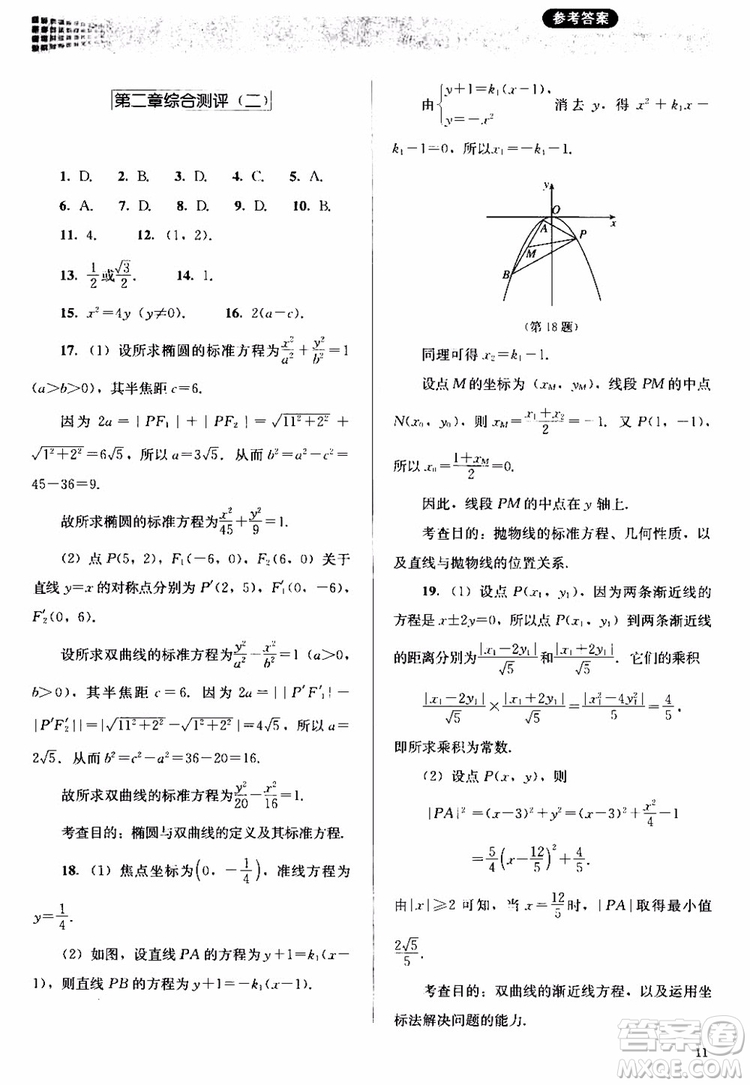 参考答案
第二章综合测评(二)
1. D. 2. B. 3. D. 4. C. 5. A.
6. A. 7. D. 8. D. 9. D. 10. B.
11. 4. 12. (1, 2).
13. 1/2或√3/2. 14. 1.
15. x²=4y (y≠0). 16. 2(a−c).
17. (1) 设所求椭圆的标准方程为x²/a²+y²/b²=1
(a>b>0),其半焦距 c=6.
因为 2a=|PF₁|+|PF₂|=√(11²+2²)+
√(1²+2²)=6√5,所以 a=3√5. 从而 b²=a²−c²=
45−36=9.
故所求椭圆的标准方程为x²/45+y²/9=1.
(2) 点 P(5, 2),F₁(−6, 0),F₂(6, 0) 关于
直线 y=x 的对称点分别为 P′(2, 5),F′₁(0, −6),
F′₂(0, 6).
设所求双曲线的标准方程为y²/a²−x²/b²=1(a>0,
b>0),其半焦距 c=6. 因为 2a=||P′F′₁|−
|P′F′₂||=|√(11²+2²)−√(1²+2²)|=4√5,所以 a=
2√5. 从而 b²=c²−a²=36−20=16.
故所求双曲线的标准方程为y²/20−x²/16=1.
考查目的:椭圆与双曲线的定义及其标准方程.
18. (1) 焦点坐标为(0, −1/4),准线方程为
y=1/4.
(2) 如图,设直线 PA 的方程为 y+1=k₁(x−
1),则直线 PB 的方程为 y+1=−k₁(x−1).
由{y+1=k₁(x−1), y=−x² 消去 y,得 x²+k₁x−
k₁−1=0,所以 x₁=−k₁−1.
y
O
x
A
P
M
B
(第 18 题)
同理可得 x₂=k₁−1.
设点 M 的坐标为 (x_M, y_M),线段 PM 的中点
N(x₀, y₀),则 x_M=(x₁+x₂)/2=−1. 又 P(1, −1),
所以 x₀=(1+x_M)/2=0.
因此,线段 PM 的中点在 y 轴上.
考查目的:抛物线的标准方程、几何性质,以
及直线与抛物线的位置关系.
19. (1) 设点 P(x₁, y₁),因为两条渐近线的
方程是 x±2y=0,所以点 P(x₁, y₁) 到两条渐近线
的距离分别为|x₁−2y₁|/√5和|x₁+2y₁|/√5. 它们的乘积
|x₁−2y₁|/√5×|x₁+2y₁|/√5=|x₁²−4y₁²|/5=4/5.
即所求乘积为常数.
(2) 设点 P(x, y),则
|PA|²=(x−3)²+y²=(x−3)²+x²/4−1
=5/4(x−12/5)²+4/5.
由|x|≥2 可知,当 x=12/5时,|PA|取得最小值
2√5/5.
考查目的:双曲线的渐近线方程,以及运用坐
标法解决问题的能力.
11